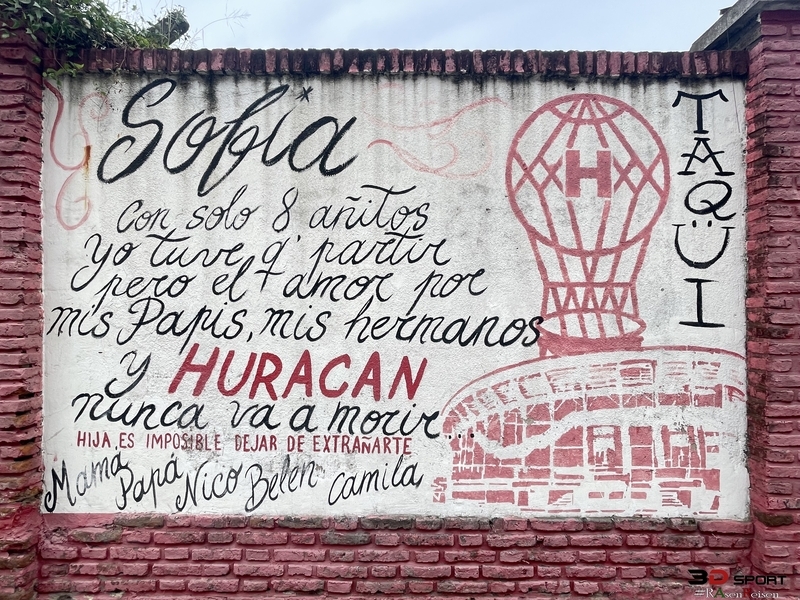 Sofia
con solo 8 añitos
yo tuve q' partir
pero el amor por
mis Papis, mis hermanos
y HURACAN
nunca va a morir...
HIJA ES IMPOSIBLE DEJAR DE EXTRAÑARTE
Mama Papá Nico Belen Camila
H
TAQÜI
3D SPORT
#RAsenReisen